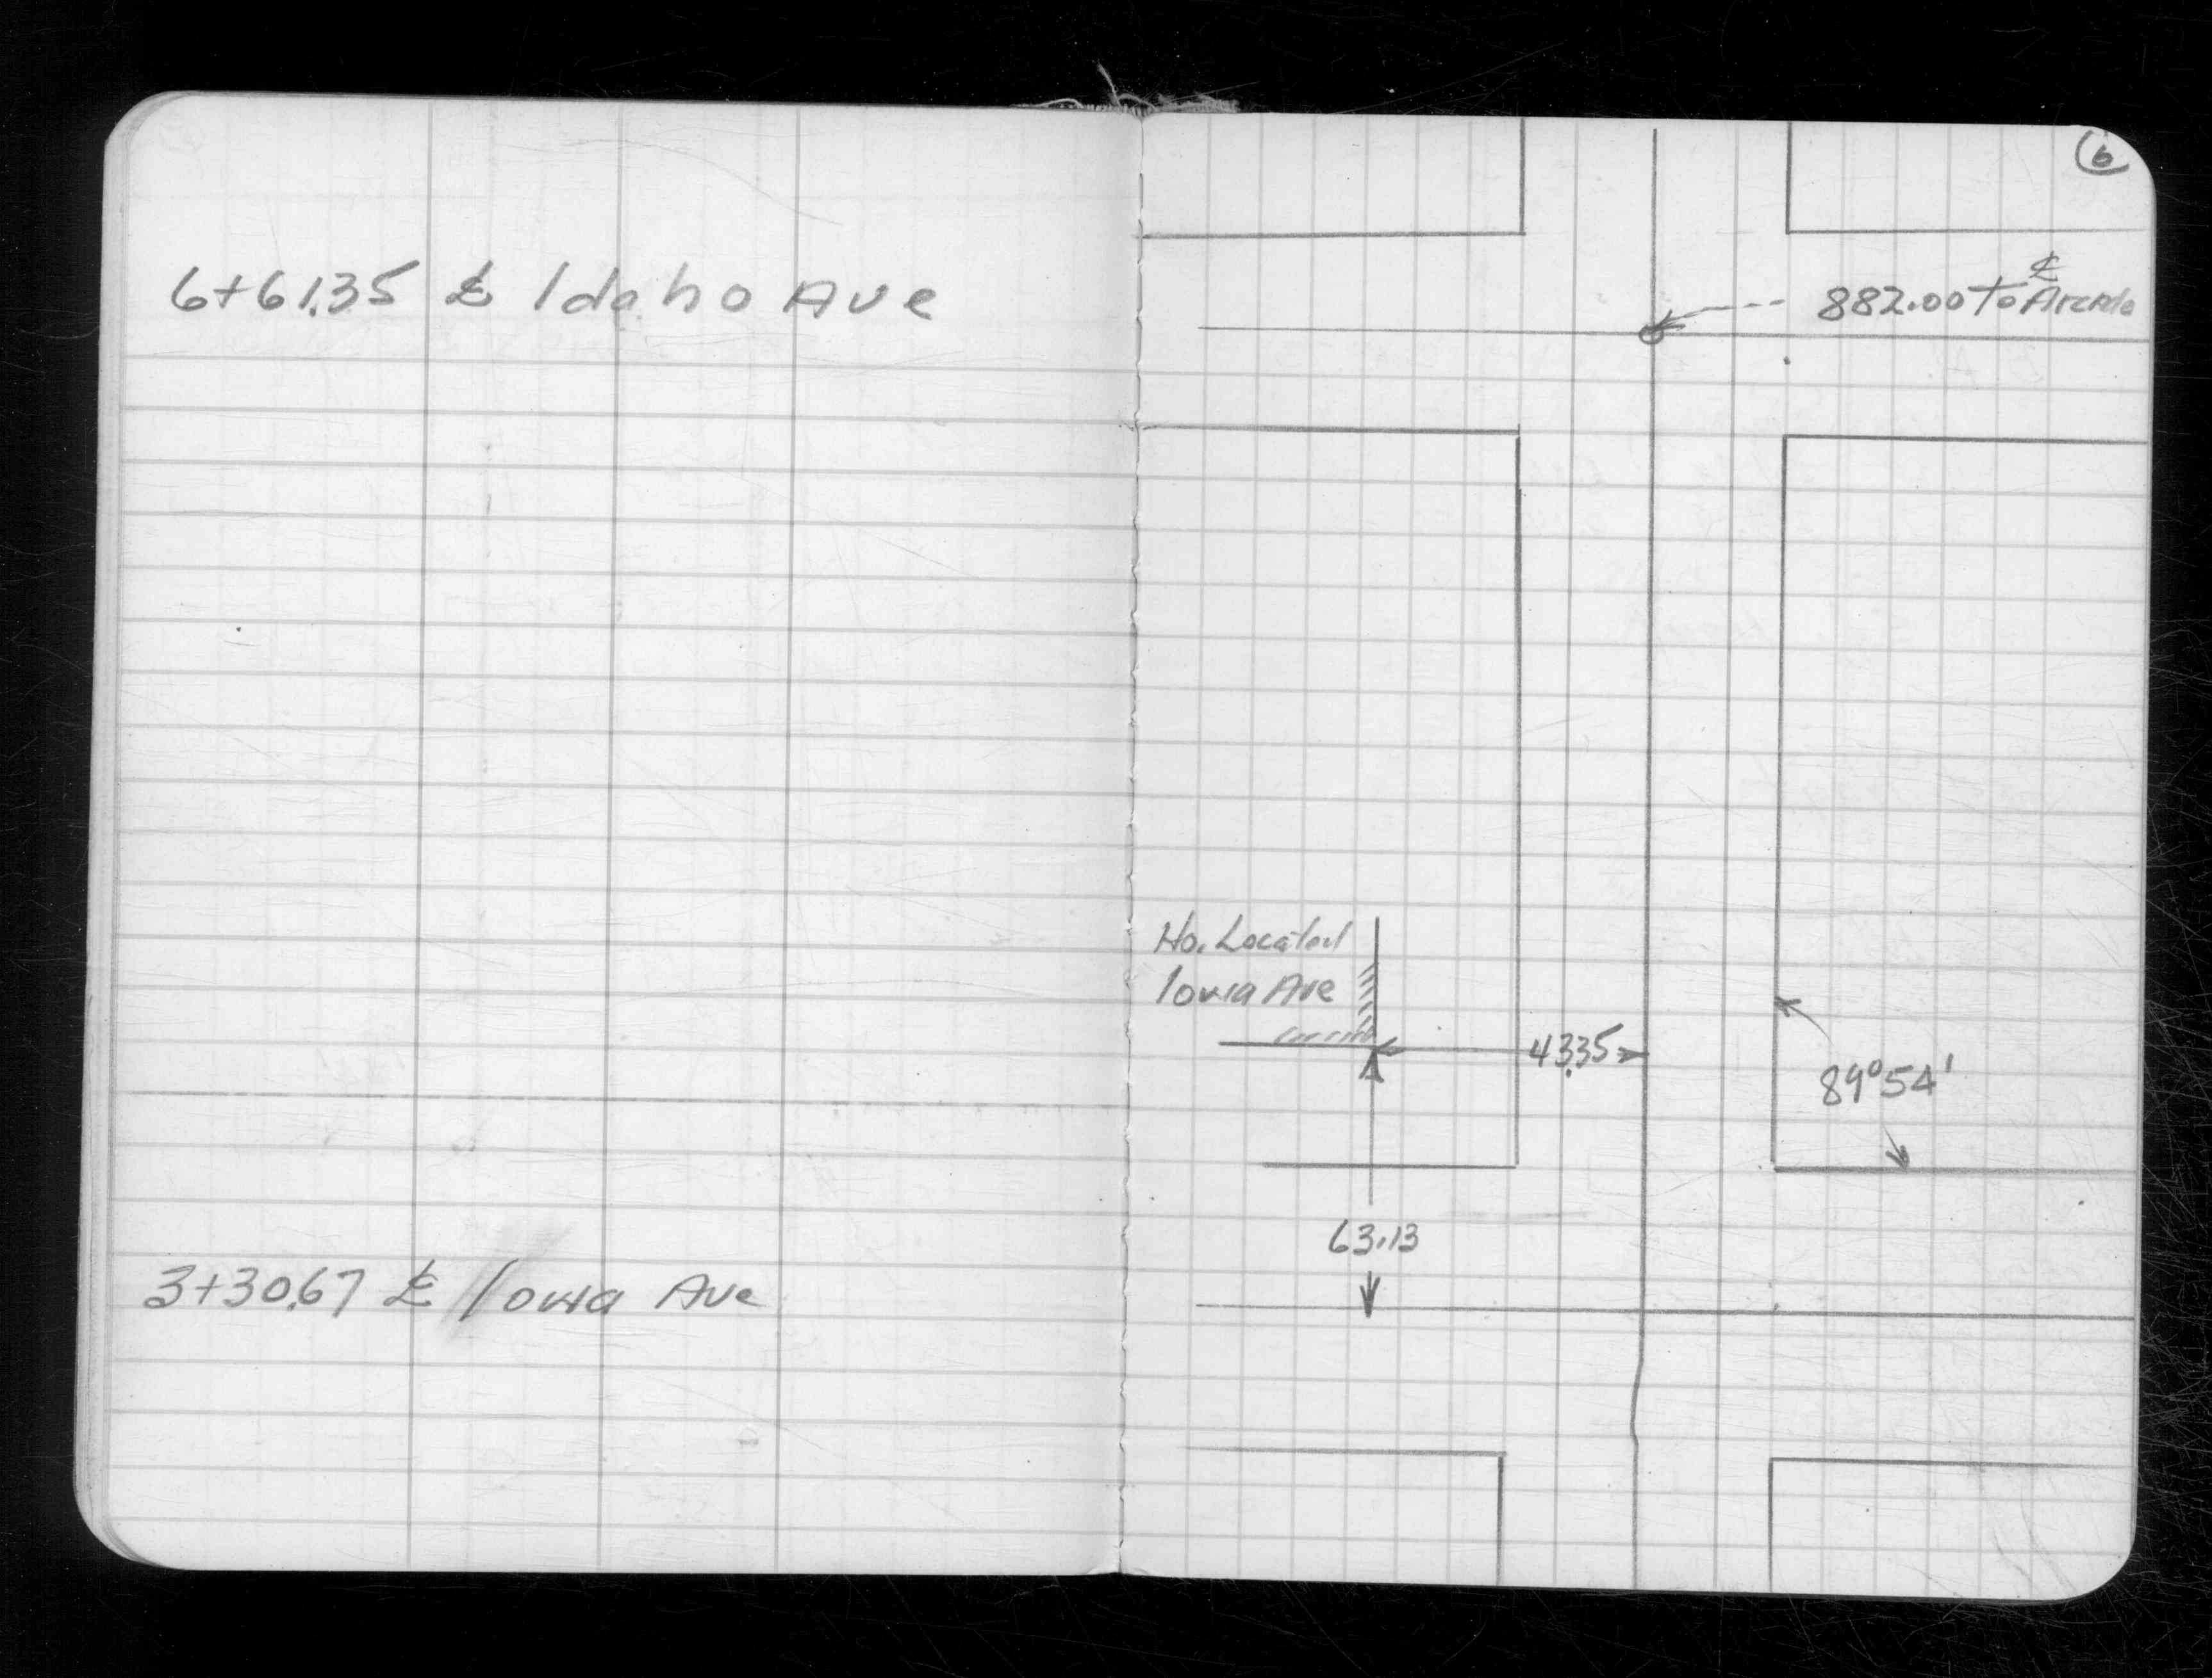 6+61.35 ℄ Idaho Ave
3+30.67 ℄ Iowa Ave
6
℄
882.00 To
Ho. Located
Iowa Ave
43.35
89°54'
63.13